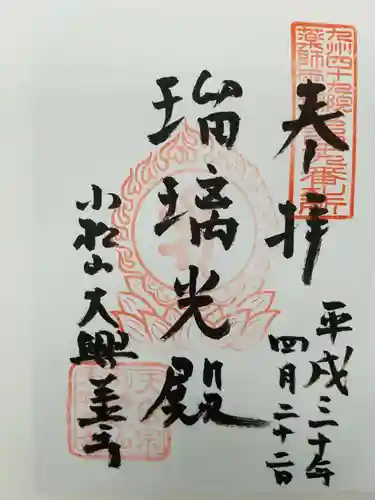 奉拝
平成三十年
四月二十二日
瑠璃光殿
小松山大興善寺
九州四十九院
薬師
天台宗